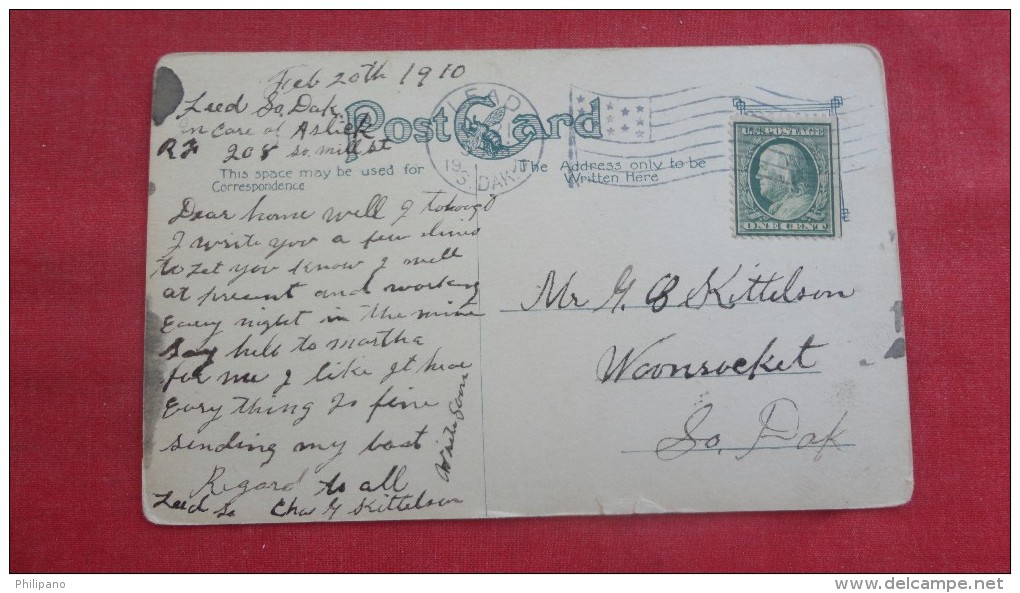 Feb 20th 1910
Leed So. Dak.
in care of Aslick
208 So. mill st
Post Card
LEAD
19
S. DAK.
U.S. POSTAGE
ONE CENT
This space may be used for
Correspondence
The Address only to be
Written Here
Dear home well I
I write you a few lines
to Let you know I well
at present and working
Every night in the mine
Say hell to martha
for me I like It hear
Every Thing Is fine
sending my bast
Regard to all
Leed So Chas G Kittelson
Write Soon
Mr G B Kittelson
Woonsocket
So. Dak
Philipano
www.delcampe.net